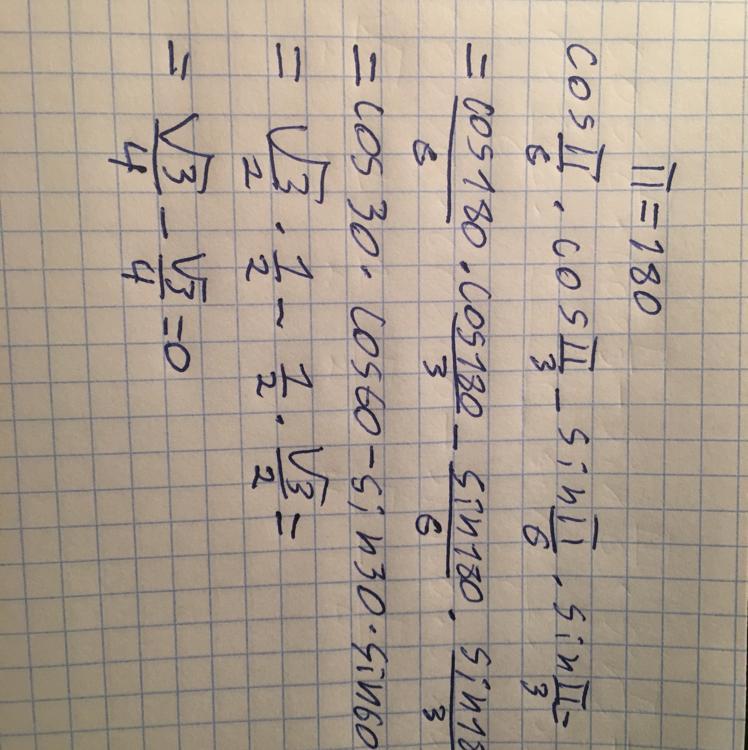 π=180
cos π/6 · cos π/3 - sin π/6 · sin π/3 =
= cos180/6 · cos180/3 - sin180/6 · sin18/3
= cos30 · cos60 - sin30 · sin60
= √3/2 · 1/2 - 1/2 · √3/2 =
= √3/4 - √3/4 = 0